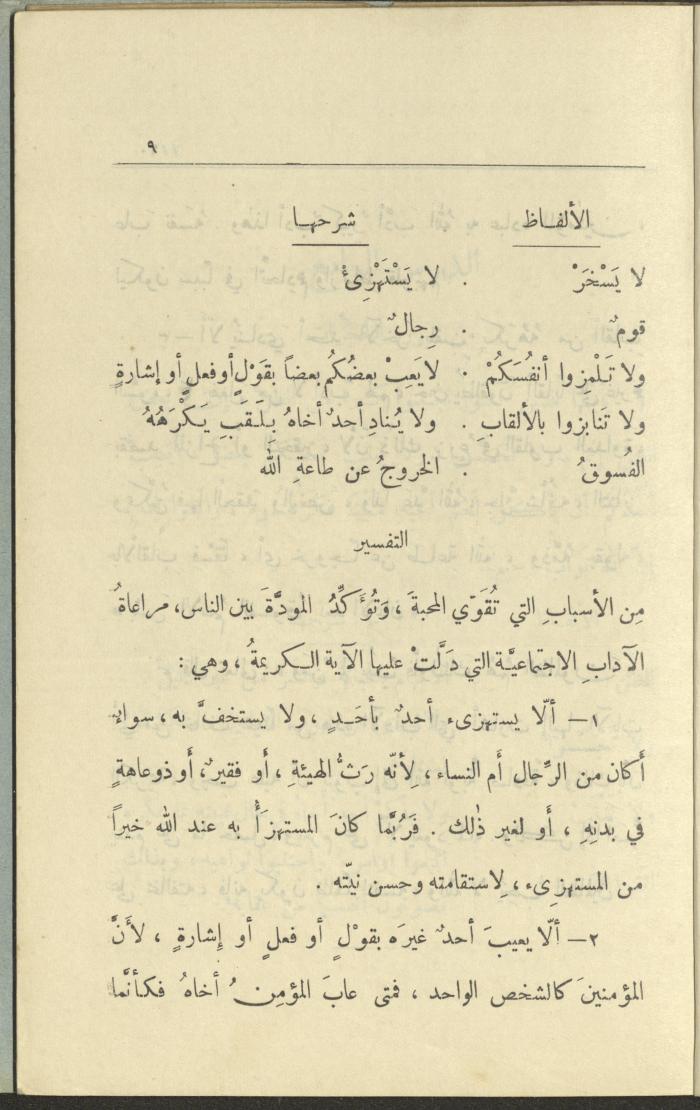 ٩
الألفـاظ شرحهـا
لا يَسْخَرْ . لا يَسْتَهْزِئْ
قومٌ . رِجالٌ
ولا تَلْمِزوا أنفُسَكُمْ . لا يَعِبْ بعضُكُم بعضاً بقَوْلٍ أو فعلٍ أو إشارةٍ
ولا تَنابزوا بالألقابِ . ولا يُنادِ أحدٌ أخاهُ بِلَقَبٍ يَكْرَهُهُ
الفُسوقُ . الخروجُ عن طاعةِ الله
التفسير
مِن الأسبابِ التي تُقَوّي المحبةَ ، وَتُؤَكِّدُ المودَّةَ بين الناس، مراعاةُ
الآدابِ الاجتماعيَّة التي دَلَّتْ عليها الآية الـكريمةُ ، وهي :
١ — ألّا يستهزىء أحدٌ بأحَـدٍ ، ولا يستخفَّ به ، سواءٌ
أَكان من الرِّجال أَم النساء ، لِأنّه رَثُّ الهيئةِ ، أَو فقيرٌ ، أَو ذو عاهةٍ
في بدنِهِ ، أَو لغير ذٰلك . فَرُبَّما كانَ المستهزَأُ به عند الله خيراً
من المستهزِىء ، لاستقامته وحسن نيّته .
٢ — ألّا يعيبَ أحدٌ غيرَه بقوْلٍ أو فعلٍ أو إِشارةٍ ، لأَنَّ
المؤمنينَ كالشخص الواحد ، فمتى عابَ المؤمِنُ أخاهُ فكأنَّما